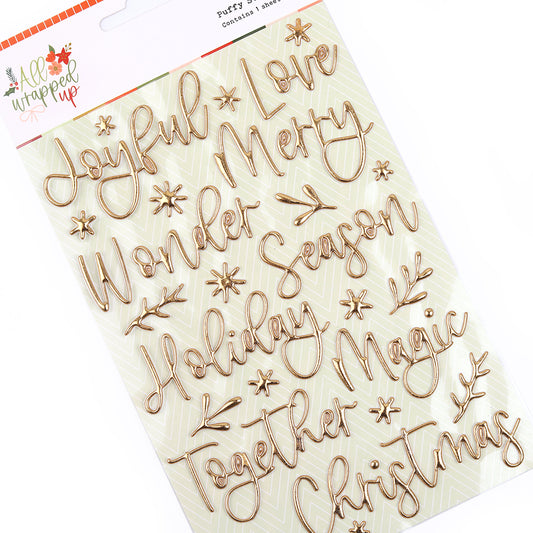 All
wrapped
up
Puffy S
Contains 1 sheet
Love
Joyful
Merry
Wonder
Season
Holiday
Magic
Together
Christmas